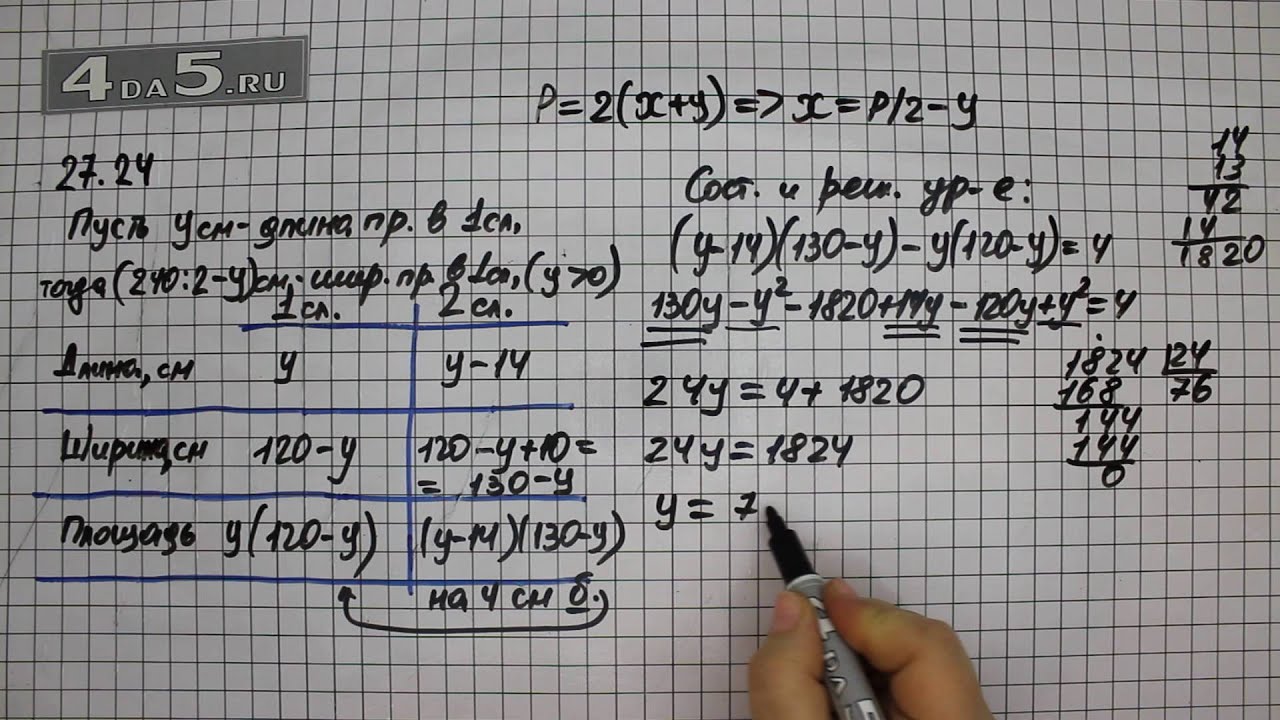 4DA5.RU
P=2(x+y)=>x=P/2-y
27.24
Пусть y см-длина пр. в 1сл.
тогда (240:2-y)см,-шир. пр. в 1сл, (y>0)
1 сл. 2 сл.
Длина, см y y-14
Ширина,см 120-y 120-y+10=
= 130-y
Площадь y(120-y) (y-14)(130-y)
на 4 см б.
Сост. и реш. ур-е:
(y-14)(130-y)-y(120-y)=4
130y-y²-1820+14y-120y+y²=4
24y=4+1820
24y=1824
y=7
14
13
42
14
1820
1824 24
168 76
144
144
0